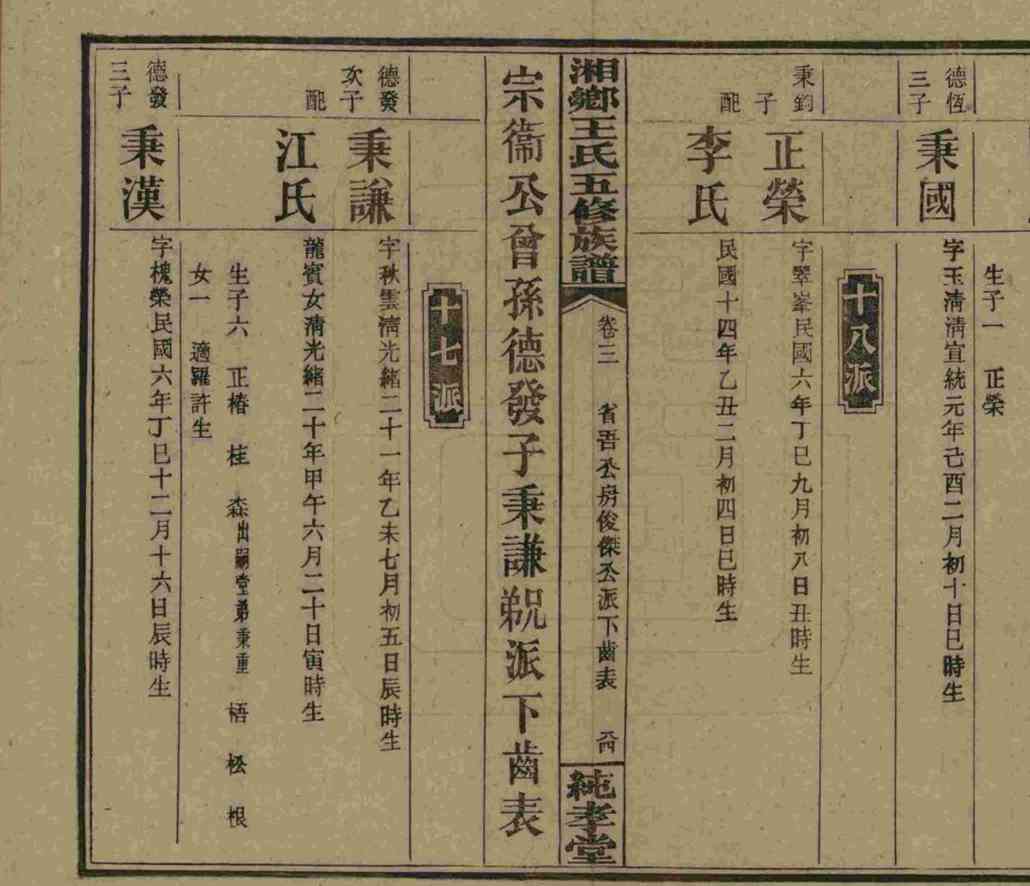 生子一　正榮
德恆
三子
秉國
字玉清清宣統元年己酉二月初十日巳時生
十八派
秉鈞
子
正榮
字翠峯民國六年丁巳九月初八日丑時生
配
李氏
民國十四年乙丑二月初四日巳時生
湘鄉王氏五修族譜
卷三
省吾公房俊傑公派下齒表
純孝堂
宗衞公曾孫德發子秉謙覜派下齒表
十七派
德發
次子
秉謙
字秋雲清光緒二十一年乙未七月初五日辰時生
配
江氏
龍賓女清光緒二十年甲午六月二十日寅時生
生子六　正椿　桂　森出嗣堂弟秉重　梧　松　根
女一　適羅許生
德發
三子
秉漢
字槐榮民國六年丁巳十二月十六日辰時生